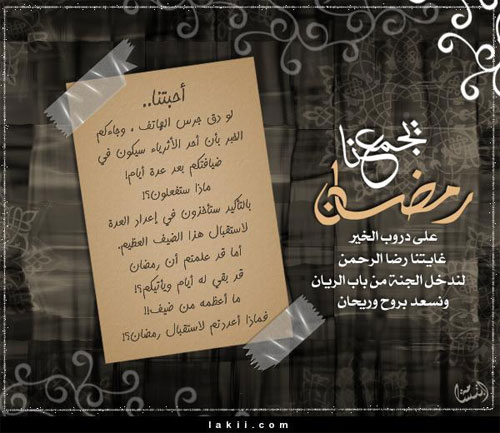 يجمعنا
رمضان
على دروب الخير
غايتنا رضا الرحمن
لندخل الجنة من باب الريان
ونسعد بروح وريحان
أحبتنا..
لو دق جرس الهاتف ، وجاءكم
الخبر بأن أحد الأثرياء سيكون في
ضيافتكم بعد عدة أيام!
ماذا ستفعلون؟!
بالتأكيد ستأخذون في إعداد العدة
لاستقبال هذا الضيف العظيم.
أما قد علمتم أن رمضان
قد بقي له أيام ويأتيكم؟!
ما أعظمه من ضيف!!
فماذا أعددتم لاستقبال رمضان؟!
lakii.com